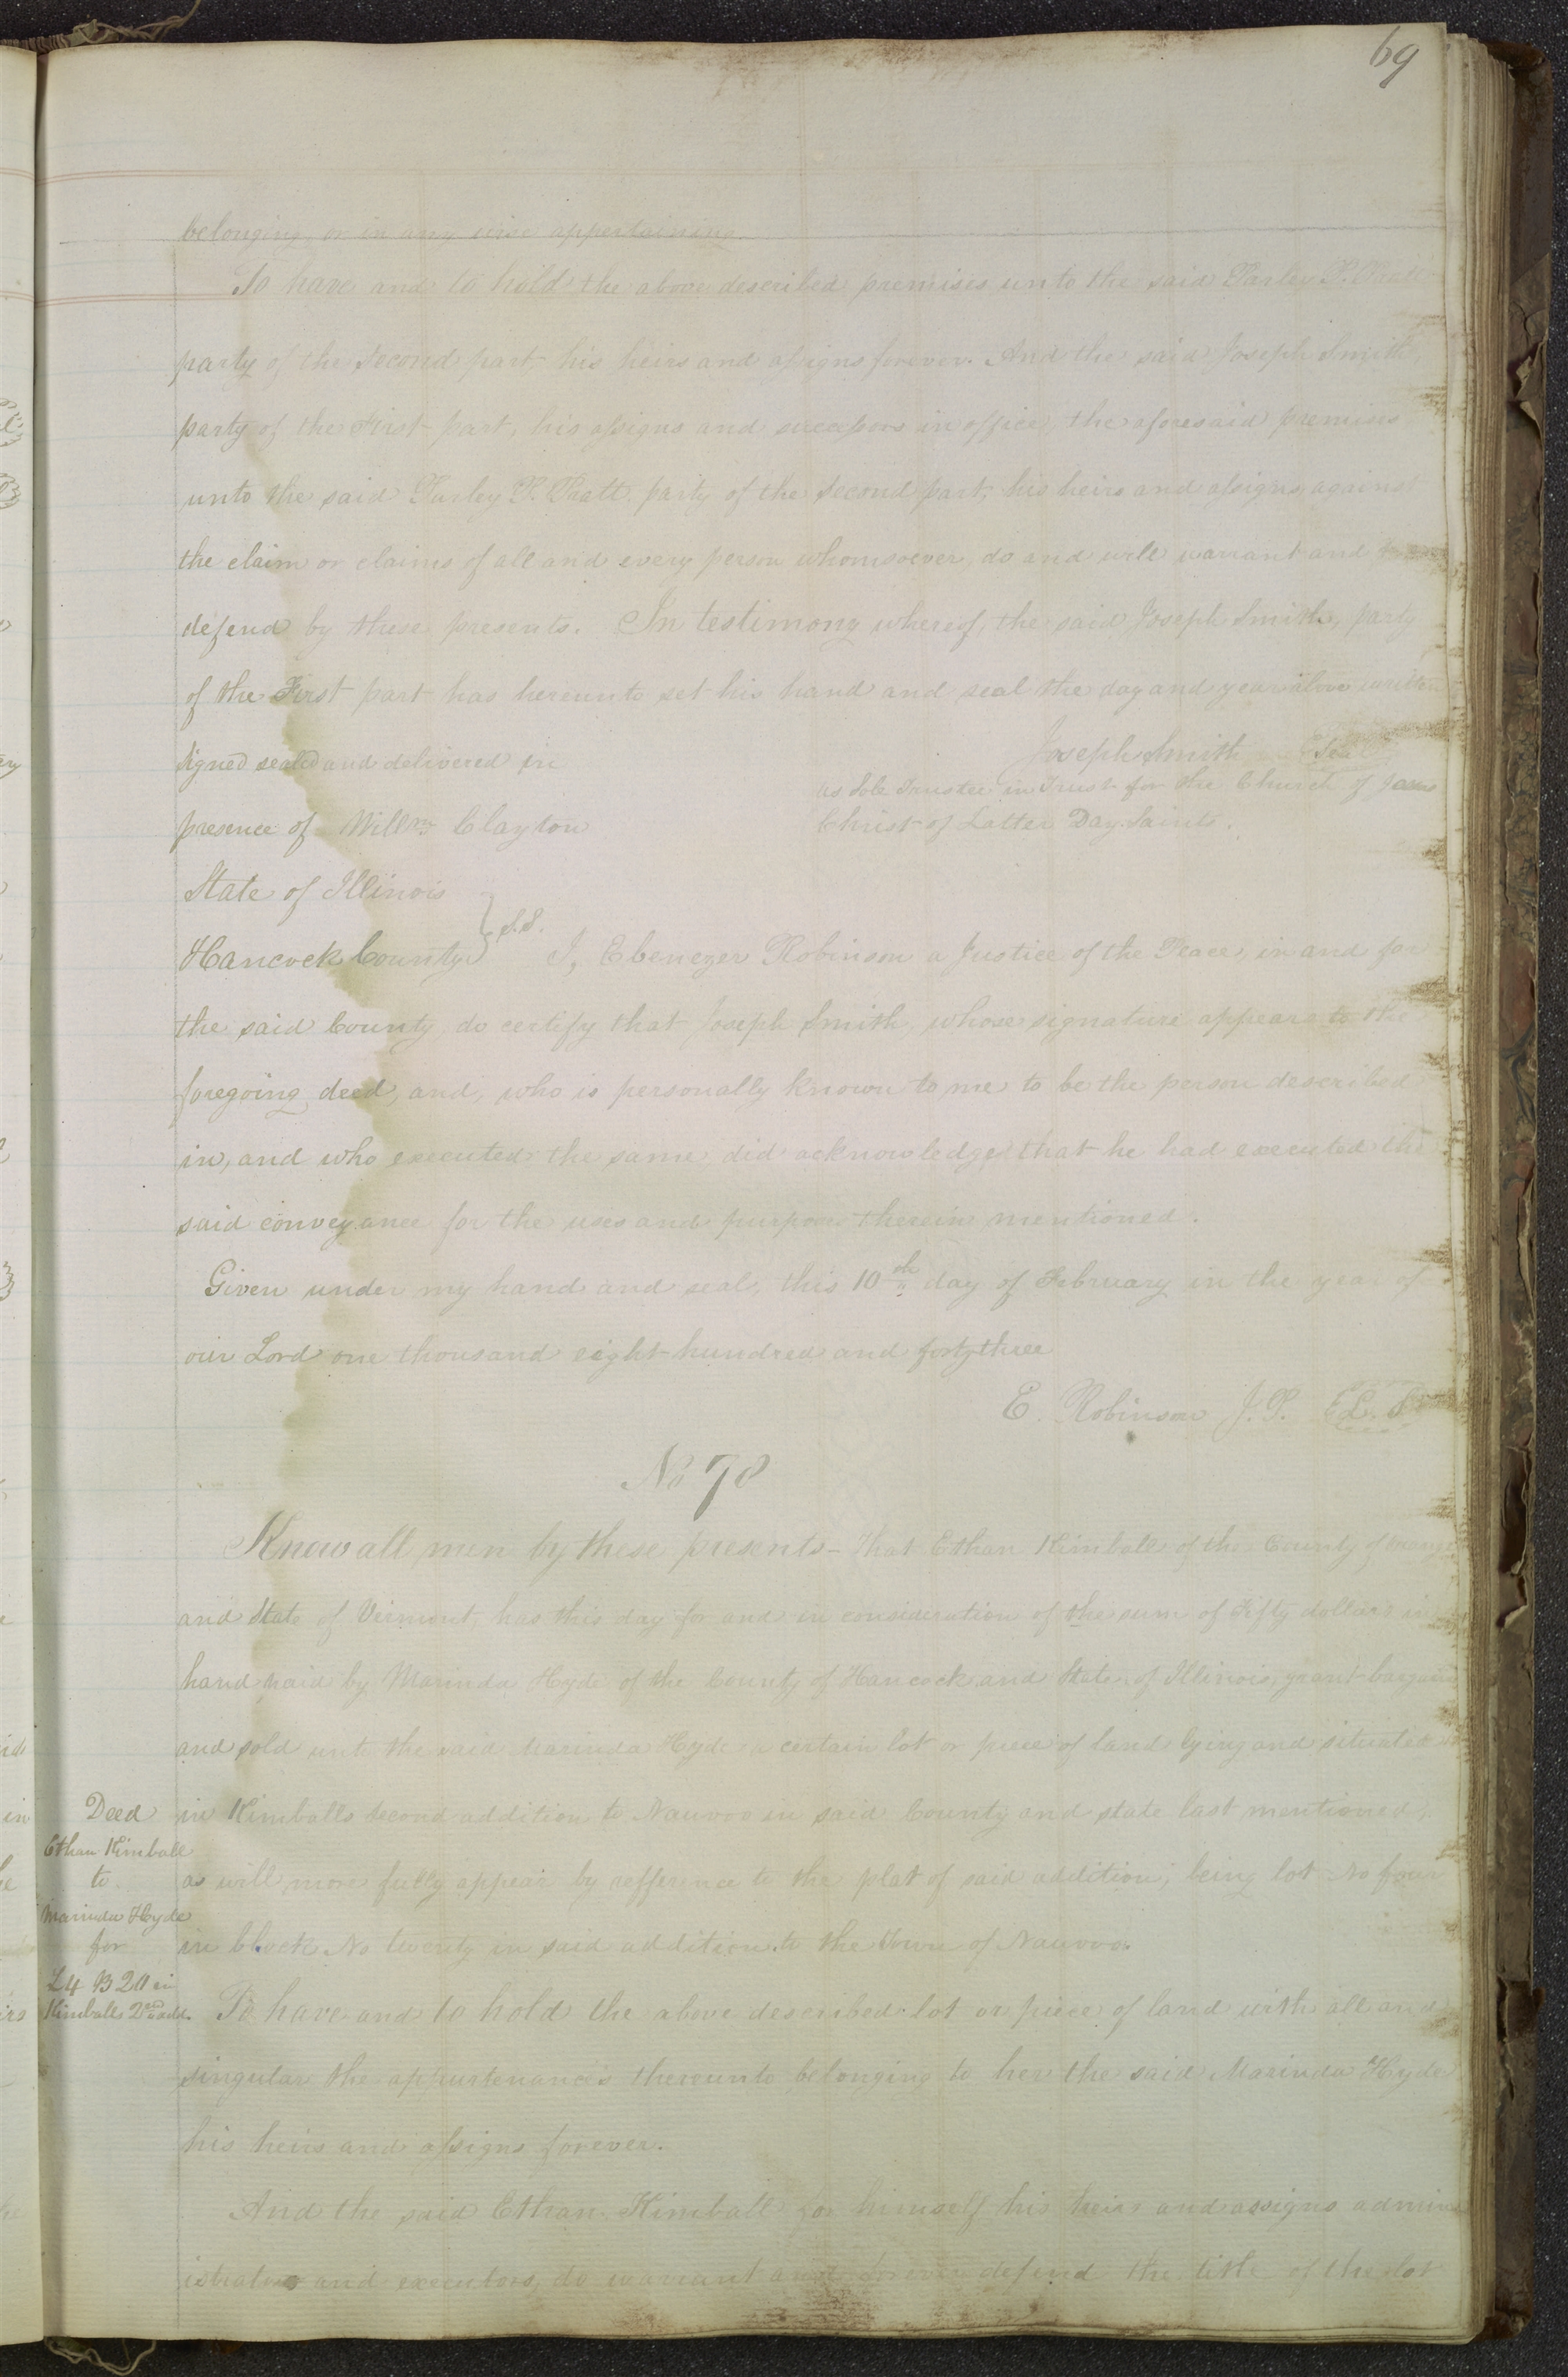 69
belonging, or in any wise appertaining.
To have and to hold the above described premises unto the said Parley P. Pratt
party of the second part his heirs and assigns forever. And the said Joseph Smith,
party of the First part, his assigns and successors in office, the aforesaid premises
unto the said Parley P. Pratt party of the second part, his heirs and assigns against
the claim or claims of all and every person whomsoever, do and will warrant and
defend by these presents. In testimony whereof, the said Joseph Smith, party
of the First part has hereunto set his hand and seal the day and year above written
Signed sealed and delivered in
Joseph Smith Seal
as Sole Trustee in Trust for the Church of Jesus
presence of Willm Clayton
Christ of Latter Day Saints.
State of Illinois
Hancock County } S.S. I, Ebenezer Robinson a Justice of the Peace, in and for
the said County do certify that Joseph Smith, whose signature appears to the
foregoing deed, and, who is personally known to me to be the person described
in, and who executed the same did acknowledge that he had executed the
said conveyance for the uses and purposes therein mentioned.
Given under my hand and seal, this 10th day of February in the year of
our Lord one thousand eight hundred and forty three
E. Robinson J.P. L.S.
No 78
Know all men by these presents - that Ethan Kimball of the County of Orange
and State of Vermont, has this day for and in consideration of the sum of Fifty dollars in
hand paid by Marinda Hyde of the County of Hancock and State of Illinois, grant bargain
and sold unto the said Marinda Hyde a certain lot or piece of land lying and situated
in Kimballs second addition to Nauvoo in said County and state last mentioned,
as will more fully appear by refference to the plat of said addition; being lot No four
in block No twenty in said addition to the Town of Nauvoo.
Deed
Ethan Kimball
to
Marinda Hyde
for
L4 B20 in
Kimballs 2nd add.
To have and to hold the above described lot or piece of land with all and
singular the appurtenances thereunto belonging to her the said Marinda Hyde
his heirs and assigns forever.
And the said Ethan Kimball for himself his heirs and assigns admin
istrators and executors, do warrant and forever defend the title of the lot